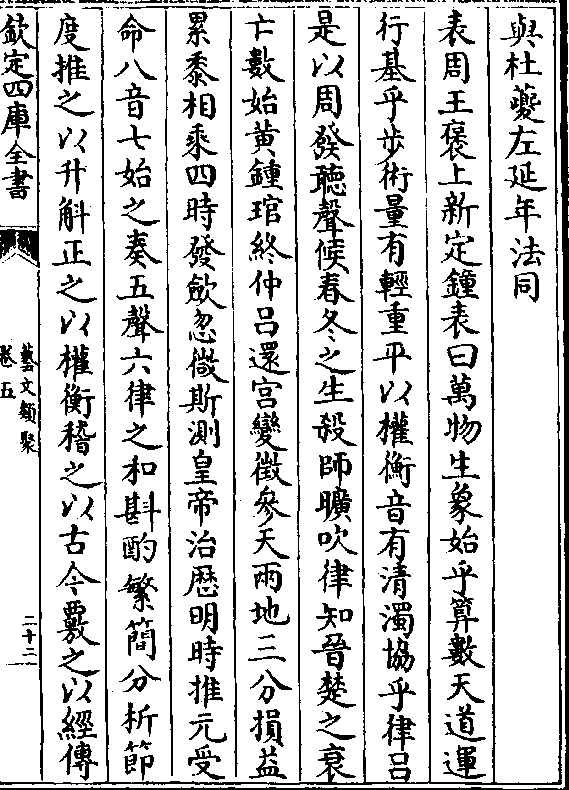 與杜夔左延年法同
表周王褒上新定鐘表曰萬物生象始乎算數天道運
行基乎步術量有輕重平以權衡音有清濁協乎律吕
是以周發聽聲候春冬之生殺師曠吹律知晉楚之衰
亡數始黄鍾琯終仲吕還宫變徵參天兩地三分損益
累黍相乘四時發斂忽微斯測皇帝治歴明時推元受
命八音七始之奏五聲六律之和斟酌繁簡分析節
度推之以升斛正之以權衡稽之以古今覈之以經傳
欽定四庫全書
藝文類聚
卷五
二十二